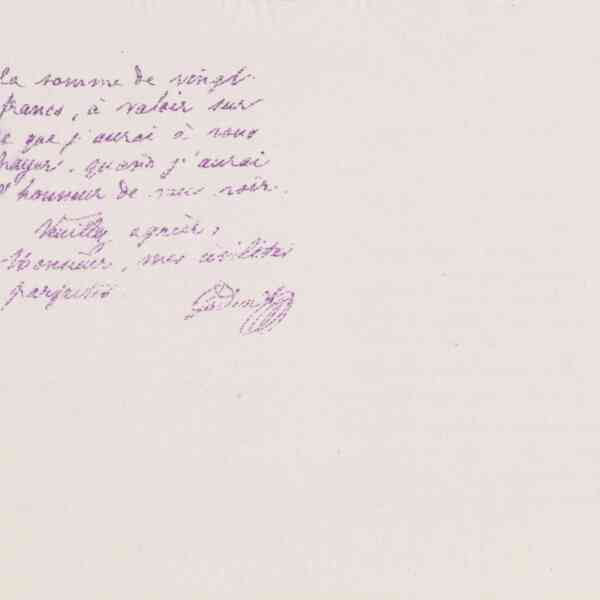 la somme de vingt
francs, à valoir sur
ce que j'aurai à vous
payer, quand j'aurai
l'honneur de vous voir.
Veuillez agréer,
Monsieur, mes civilités